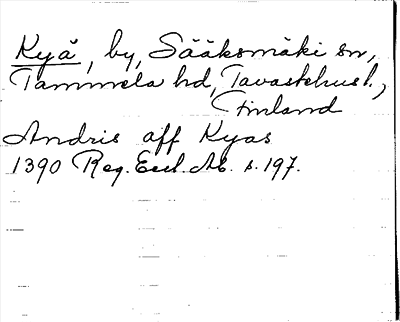 Kyä, by, Sääksmäki sn,
Tammela hd, Tavastehusl.,
Finland
Andris aff Kyas
1390 Reg. Eccl. Ab. s. 197.